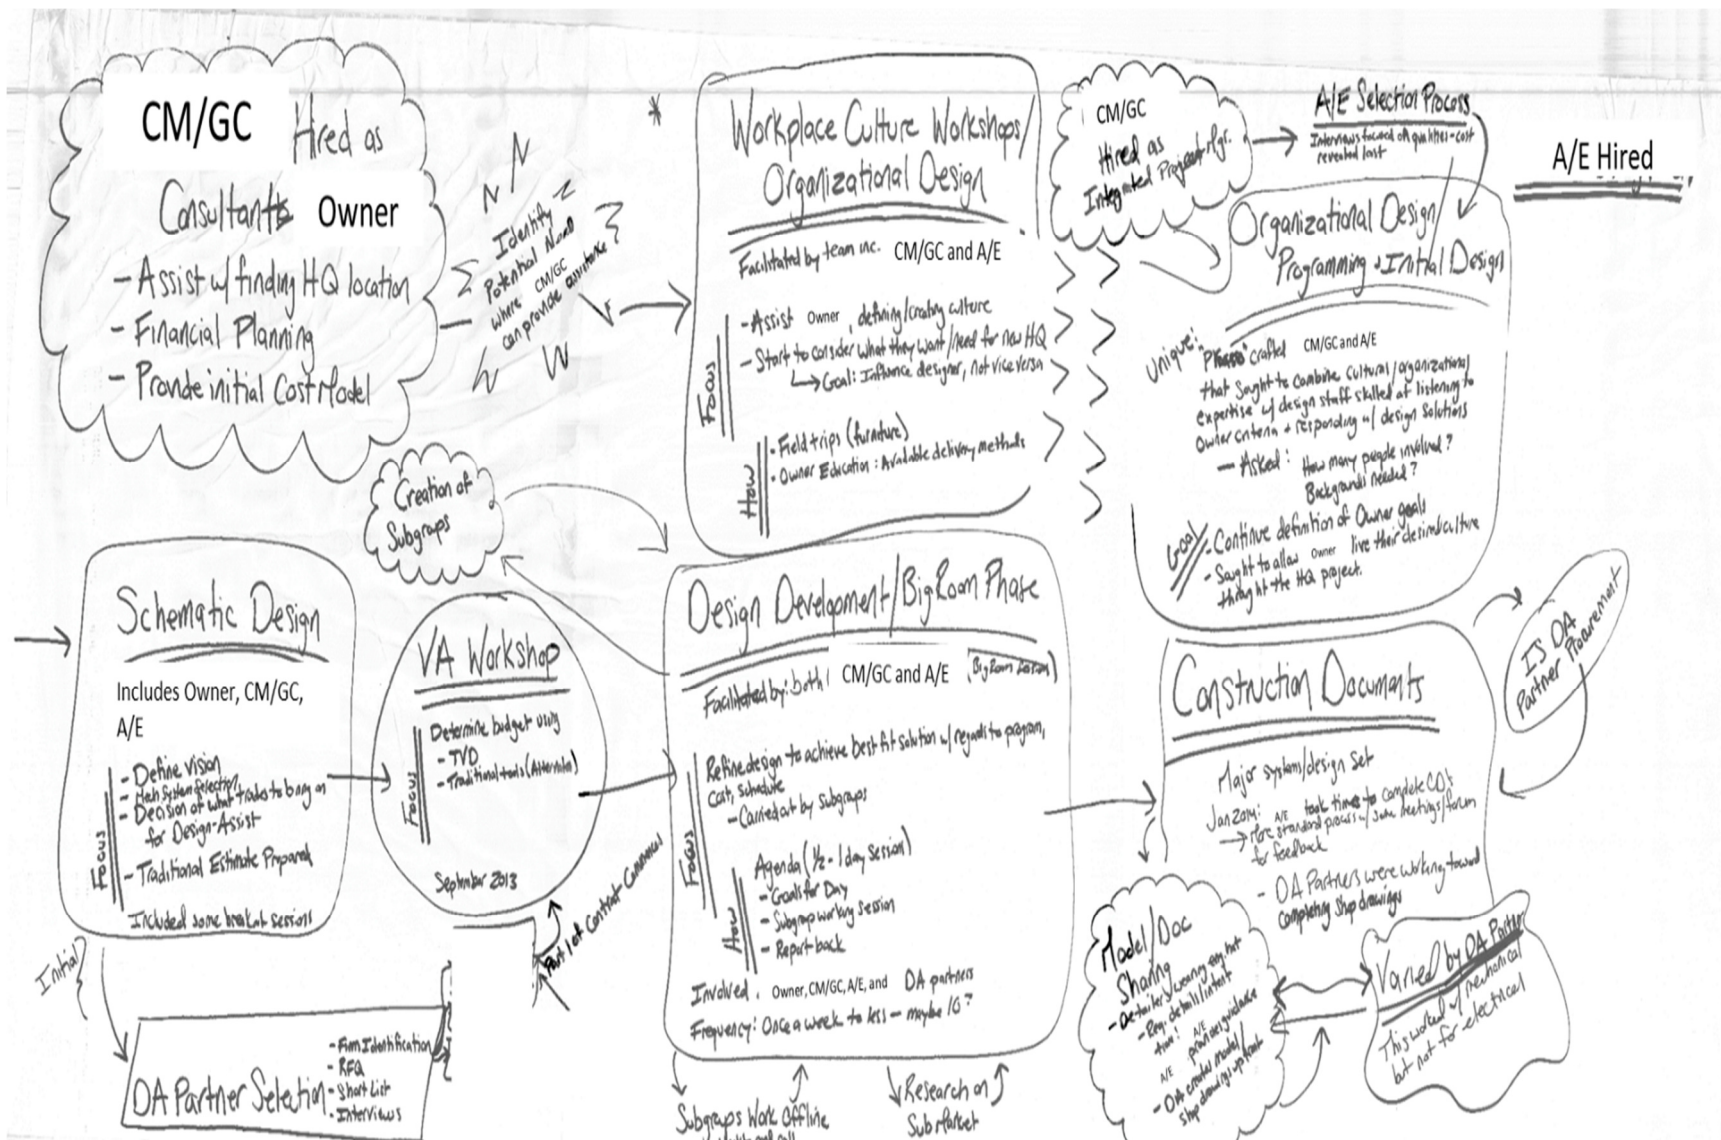 CM/GC Hired as
Consultants Owner
- Assist w/ finding HQ location
- Financial Planning
- Provide initial Cost Model
Identify
Potential Need
where CM/GC
can provide assistance
*
Workplace Culture Workshops/
Organizational Design
Facilitated by team inc. CM/GC and A/E
Focus
- Assist Owner, defining/creating culture
- Start to consider what they want/need for new HQ
Goal: Influence designer, not vice versa
How
- Field trips (furniture)
- Owner Education: Available delivery methods
CM/GC
Hired as
Integrated Program Mgr.
A/E Selection Process
Interviews focused on qualities - cost
revealed last
A/E Hired
Organizational Design/
Programming + Initial Design
Unique: "Phase" crafted CM/GC and A/E
that sought to combine cultural/organizational
expertise w/ design staff skilled at listening to
owner criteria + responding w/ design solutions
- Asked: How many people involved?
Backgrounds needed?
Goal
- Continue definition of Owner goals
- Sought to allow Owner live their desired culture
through the HQ project.
Creation of
Subgroups
Schematic Design
Includes Owner, CM/GC,
A/E
Focus
- Define vision
- Mech System Selection
- Decision of what trades to bring on
for Design-Assist
- Traditional Estimate Prepared
Included some breakout sessions
Initial
DA Partner Selection
- Firm Identification
- RFQ
- Short List
- Interviews
VA Workshop
Focus
Determine budget using
- TVD
- Traditional tools (Alternates)
September 2013
Part 1 of Contract Commences
Design Development/Big Room Phase
Facilitated by: both CM/GC and A/E (Big Room Session)
Focus
Refine design to achieve best fit solution w/ regards to program,
cost, schedule
- Carried out by Subgroups
How
Agenda (1/2 - 1 day session)
- Goals for Day
- Subgroup working session
- Report back
Involved. Owner, CM/GC, A/E, and DA partners
Frequency: Once a week to less - maybe 10?
Subgroups Work Offline
Research on
Sub Market
Construction Documents
Major systems/design set
Jan 2014: A/E took time to complete CD's
→ More standard process w/ some meetings/forum
for feedback
- DA Partners were working toward
completing shop drawings
IS DA
Partner Procurement
Model/Doc
Sharing
- Req. details/intent
A/E provides guidance
A/E
- DA creates model/
shop drawings upfront
Varied by DA Partner
This worked w/ mechanical
but not for electrical